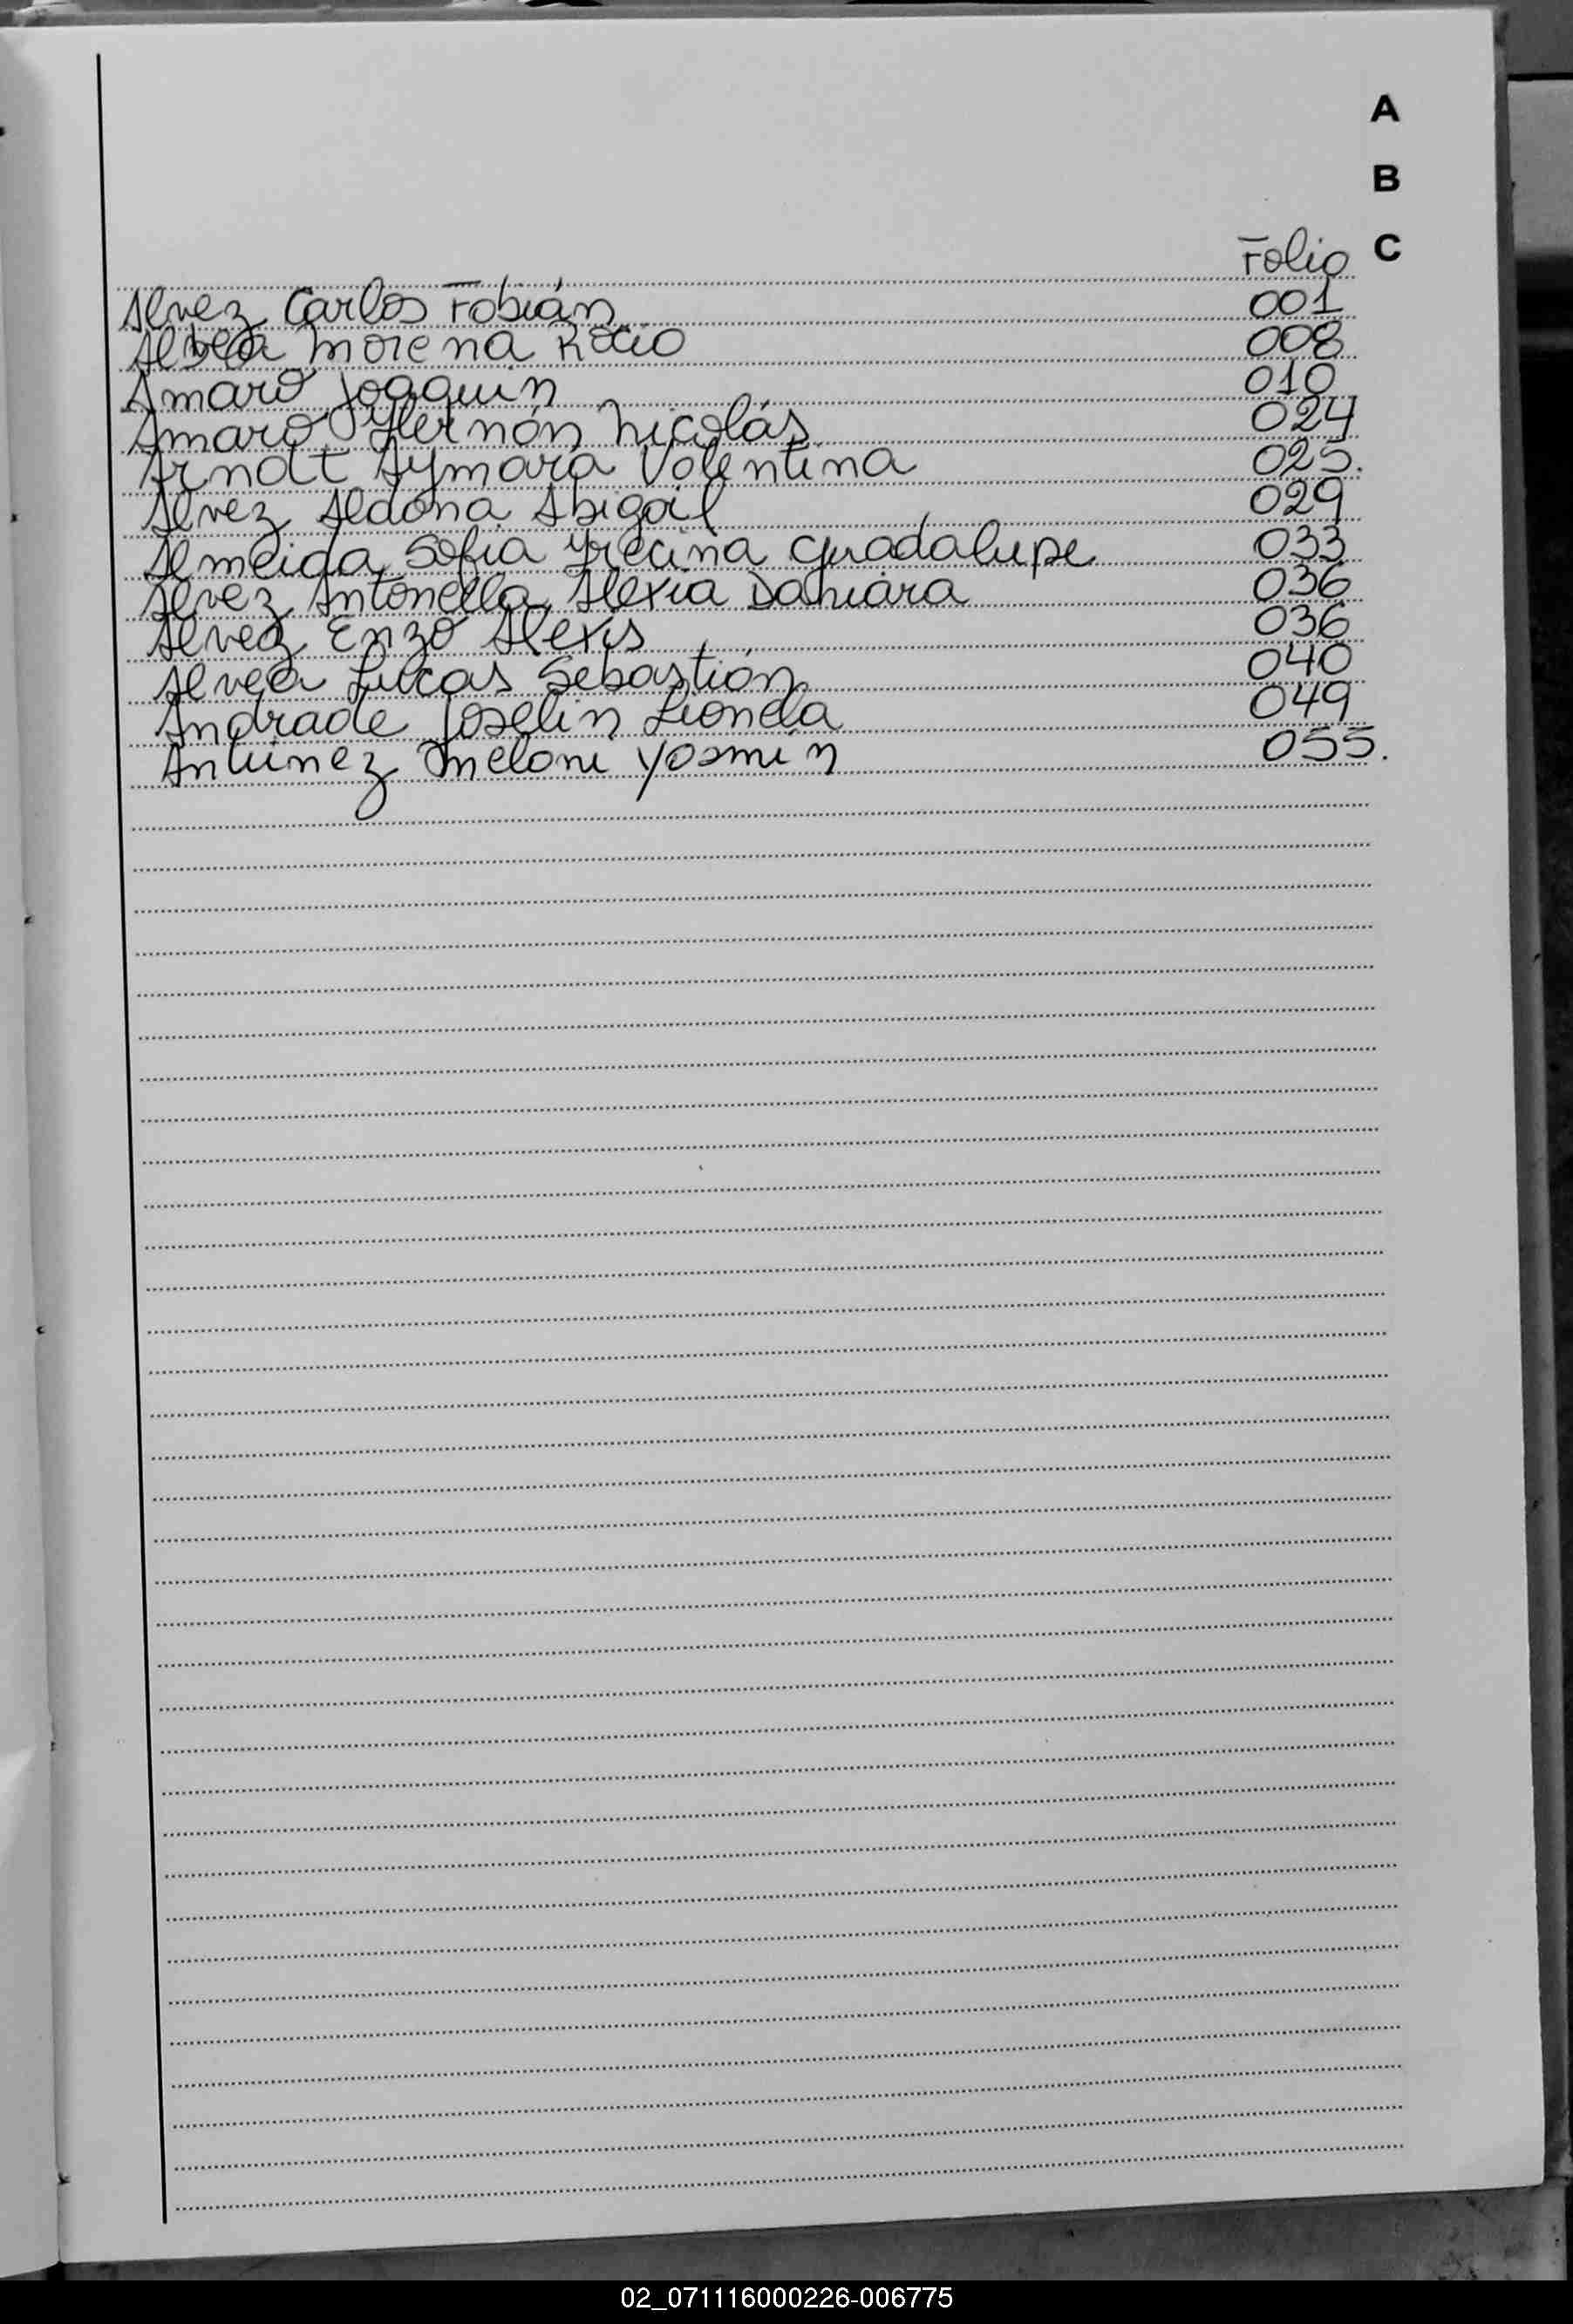 A
B
Folio C
Alvez Carlos Fabián 001
Alvea Morena Rocio 008
Amaro Joaquín 010
Amaro Hernán Nicolás 024
Arndt Aymara Valentina 025.
Alvez Aldana Abigail 029
Almeida Sofia Guadalupe 033
Alvez Antonella Alexia Damiara 036
Alvez Enzo Alexis 036
Alvea Lucas Sebastián 040
Andrade Joselin Lionela 049
Antunez Meloni Yasmin 055.
02_071116000226-006775